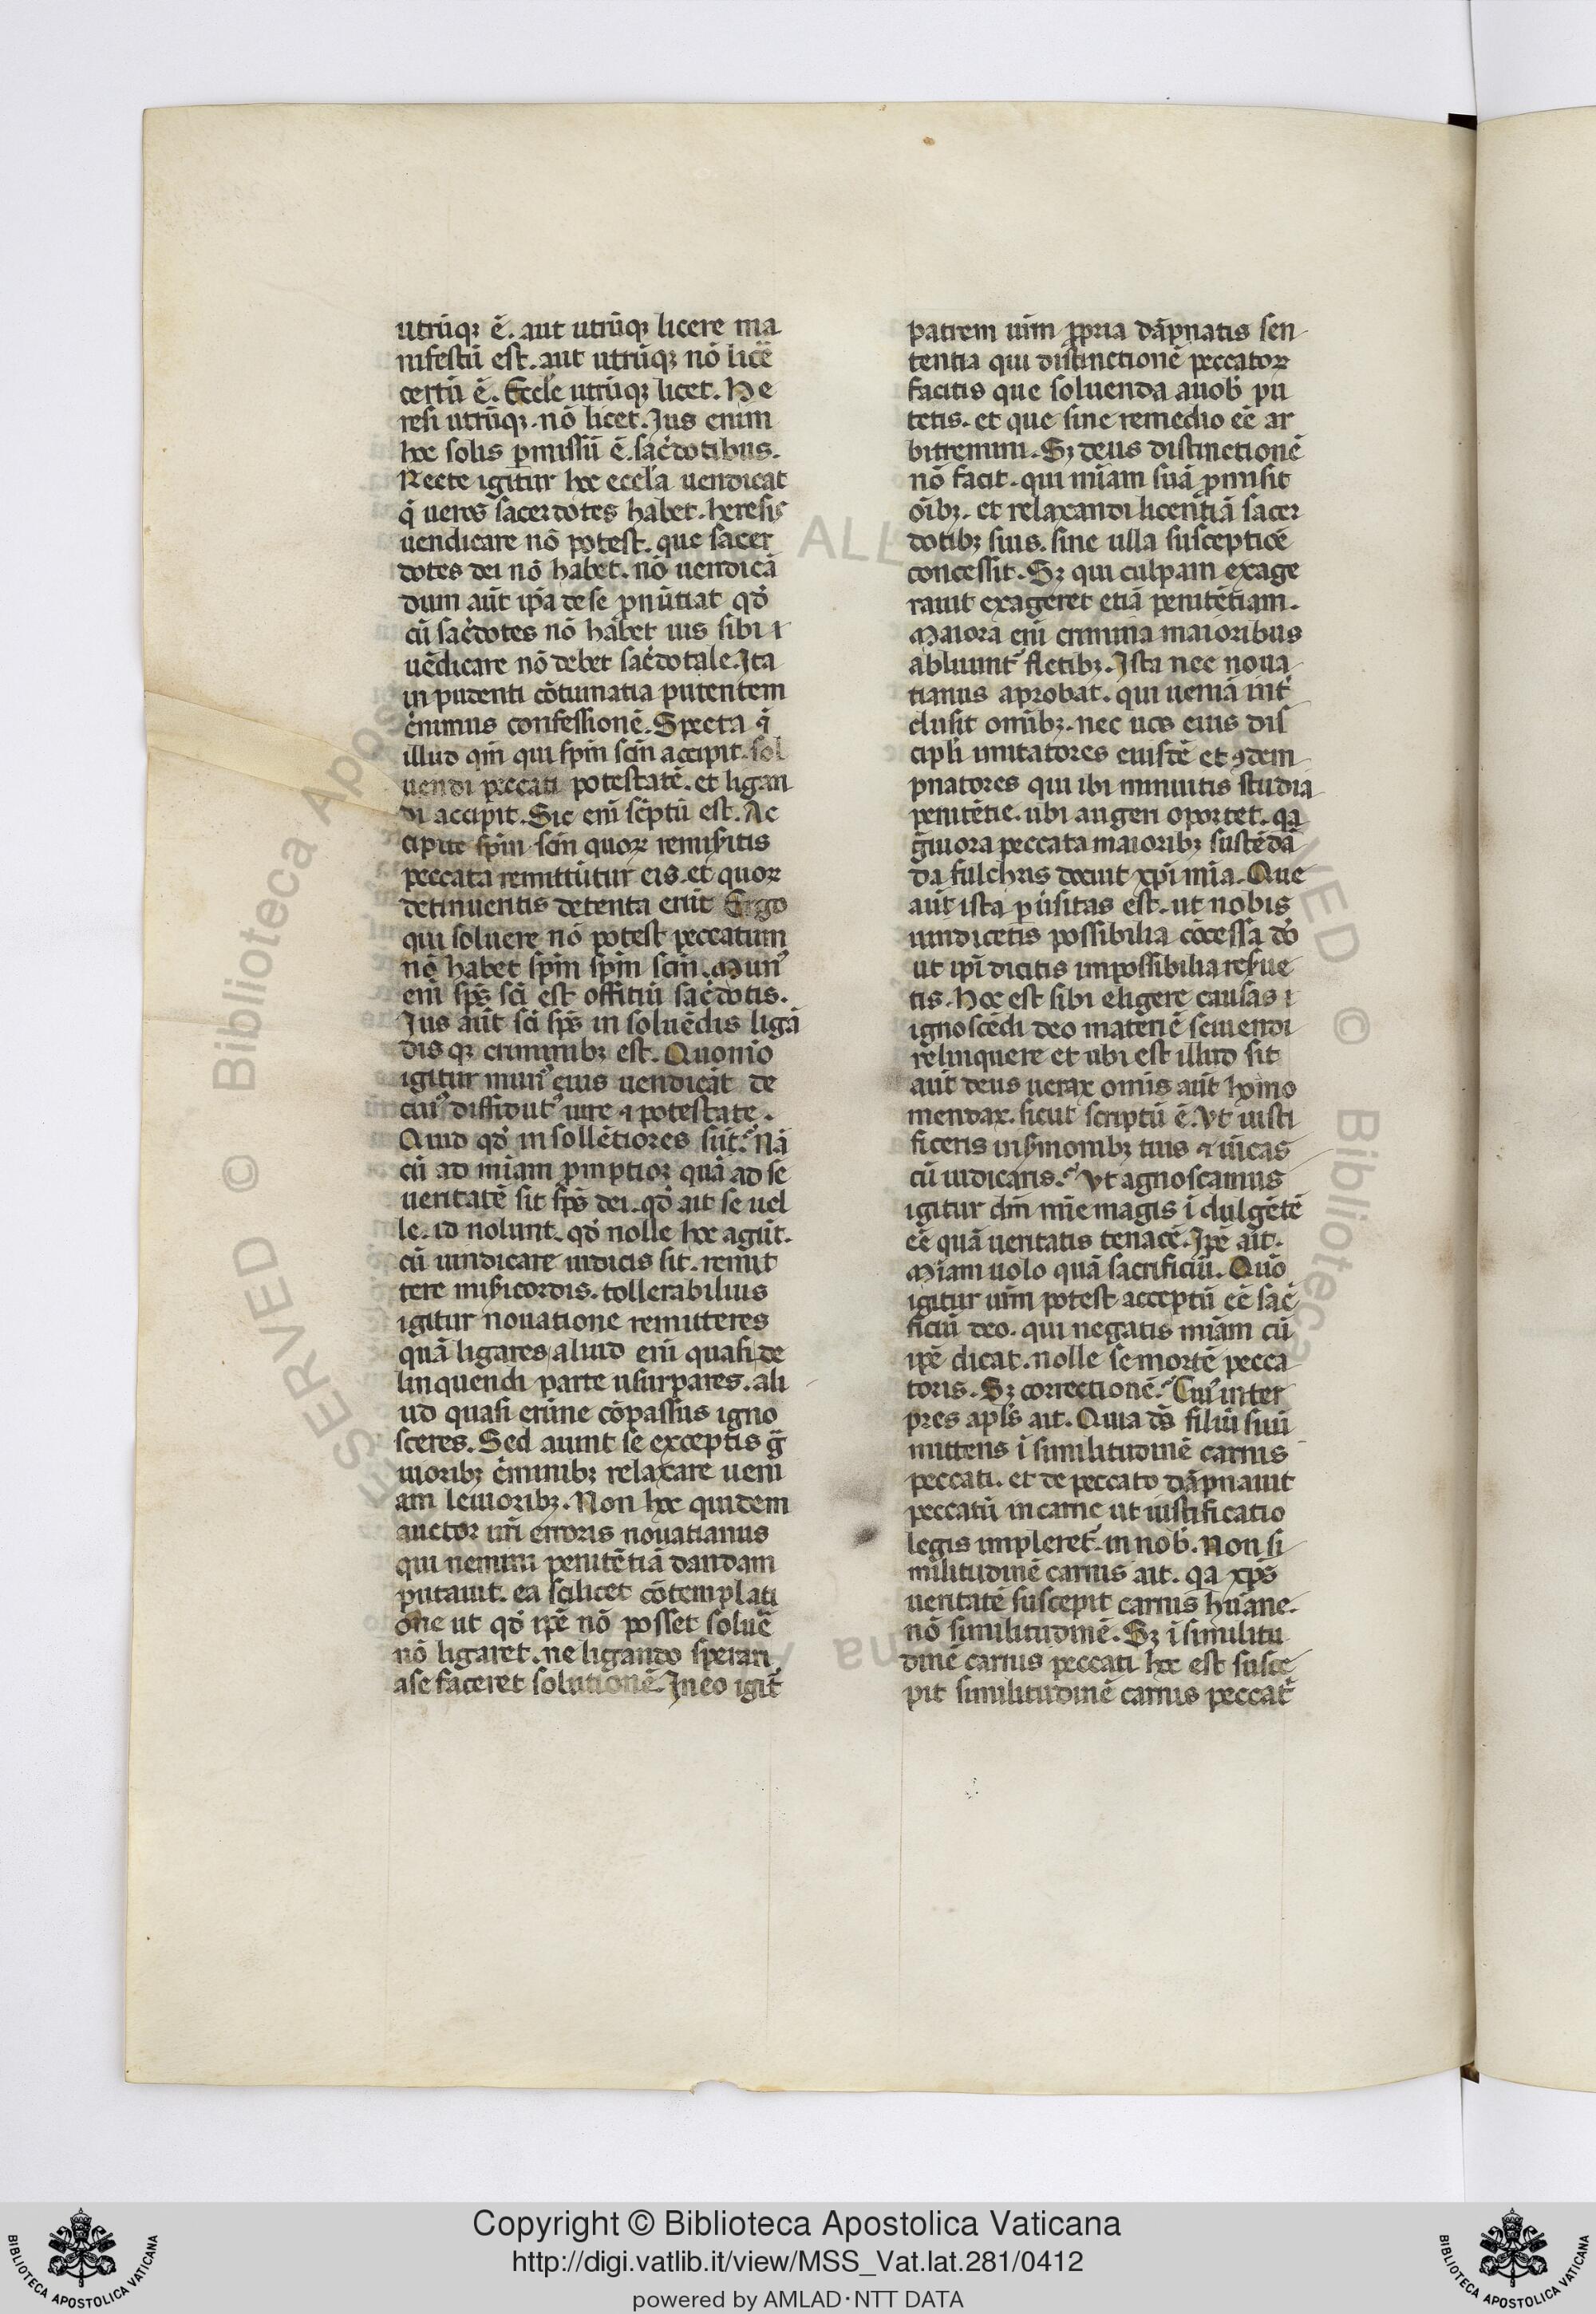 utrūqꝫ ē. aut utrūqꝫ licere ma
nifestū est. aut utrūqꝫ nō licē
certū ē. Eccłe utrūqꝫ licet. He
resi utrūqꝫ. nō licet. Ius enim
hoc solis ꝑmissū ē. sac̄dotibus.
Recte igitur hoc eccła uendicat
q̄ ueros sacerdotes habet. heresis
uendicare nō potest. que sacer
dotes dei nō habet. nō uendicā
dum aūt ip̄a de se ꝓnūtiat qđ
cū sac̄dotes nō habet ius sibi ⁊
uēdicare nō debet sac̄dotale. Ita
in pudenti cōtumatia pudentem
c̄nimus confessionē. Specta q̄
illud qm̄ qui sp̄m sc̄m accipit. sol
uendi peccati potestatē. et ligan
di accipit. Sic eni sc̄ptū est. Ac
cipite sp̄m sc̄m quoꝝ remisitis
peccata remittūtur eis. et quoꝝ
detinueritis detenta erūt Ergo
qui soluere nō potest peccatum
nō habet sp̄m sp̄m sc̄m. Mun᾿
eni sp̄s sc̄i est offitiū sac̄dotis.
Ius aūt sc̄i sp̄s in soluēdis ligā
dis qꝫ criminibꝫ est. Quomō
igitur mun᾿ eius uendicāt de
cui᾿ diffidūt᾿ iure ⁊ potestate.
Quid qđ in sollētiores sūt. Nā
cū ad miam ꝓmptior quā ad se
ueritatē sit sp̄s dei. qđ ait se uel
le. id nolunt. qđ nolle hoc agūt.
cū uindicare iudicis sit. remit
tere misicordis. tollerabilius
igitur nouatione remitteres
quā ligares aliud eni quasi de
linquendi parte usurpares. ali
ud quasi crimine cōpassus igno
sceres. Sed aiunt se exceptis g̃
uioribꝫ c̄minibꝫ relaxare ueni
am leuioribꝫ. Non hoc quidem
auctor uri erroris nouatianus
qui nemini penitētiā dandam
putauit. ea scilicet cōtemplati
one ut qđ ip̄e nō posset soluē
nō ligaret. ne ligando sperari
a se faceret solutionē. In eo igit̄
patrem um̄ ꝓpria dāpnatis sen
tentia qui distinctionē peccatoꝝ
facitis que soluenda a uob̄ pu
tetis. et que sine remedio eē ar
bitremini. Sꝫ deus distinctionē
nō facit. qui miam suā ꝓmisit
oībꝫ. et relaxandi licentiā sacer
dotibꝫ suis. sine ulla susceptiōe
concessit. Sꝫ qui culpam exage
rauit exageret etiā penitētiam.
Maiora eni crimina maioribus
abluunt᾿ fletibꝫ. Ista nec noua
tianus aprobat. qui ueniā int̄
clusit omībꝫ. nec uos eius dis
cipli imitatores eiusdē et ꝯdem
pnatores qui ibi minuitis studia
penitētie. ubi augeri oportet. qa
g̃uiora peccata maioribꝫ sustētā
da fulchris docuit xp̄i mia. Que
aūt ista ꝑuersitas est. ut nobis
uindicetis possibilia cōcessa dō
ut ip̄i dicitis impossibilia reserue
tis. Hoc est sibi eligere causas ⁊
ignoscēdi deo materiē seuiendi
relinquere et ubi est illud sit
aūt deus uerax omis aūt homo
mendax. sicut scriptū ē. Vt iusti
ficeris in s̄monibꝫ tuis ⁊ uīcas
cū iudicaris. Vt agnoscamus
igitur dm̄ mie magis i dulgētē
eē quā ueritatis tenacē. Ip̄e ait.
Miam uolo quā sacrificiū. Quō
igitur um̄ potest acceptū eē sac̄
ficiū deo. qui negatis miam cū
ip̄e dicat. nolle se mortē pecca
toris. Sꝫ correctionē. Cui᾿ inter
pres apłs ait. Quia ds̄ filiū suū
mittens i similitudinē carnis
peccati. et de peccato dāpnauit
peccatū in carne ut iustificatio
legis impleret᾿ in nob̄. Non si
militudinē carnis ait. qa xp̄s
ueritatē suscepit carnis hūane.
nō similitudinē. Sꝫ i similitu
dinē carnis peccati hoc est susce
pit similitudinē carnis peccat̄
Copyright © Biblioteca Apostolica Vaticana
http://digi.vatlib.it/view/MSS_Vat.lat.281/0412
powered by AMLAD·NTT DATA